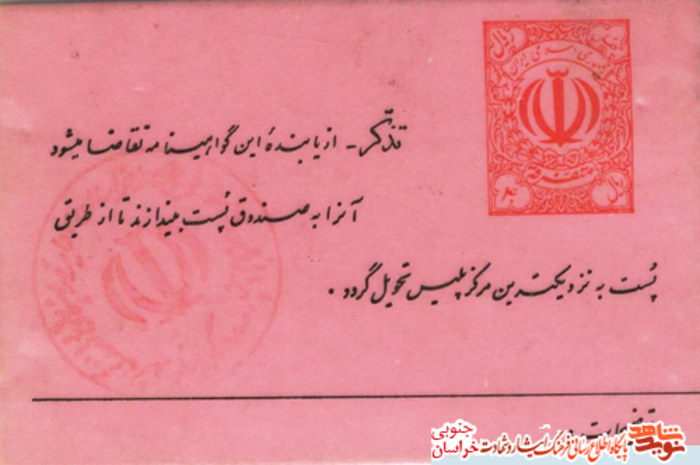 جمهوری اسلامی ایران
ریال
متفرقه
ریال
تذکّر - از یابنده این گواهینامه تقاضا میشود
آنرا به صندوق پُست بیندازند تا از طریق
پُست به نزدیکترین مرکز پلیس تحویل گردد .
نوید شاهد
پایگاه اطلاع رسانی فرهنگ ایثار و شهادت
خراسان جنوبی